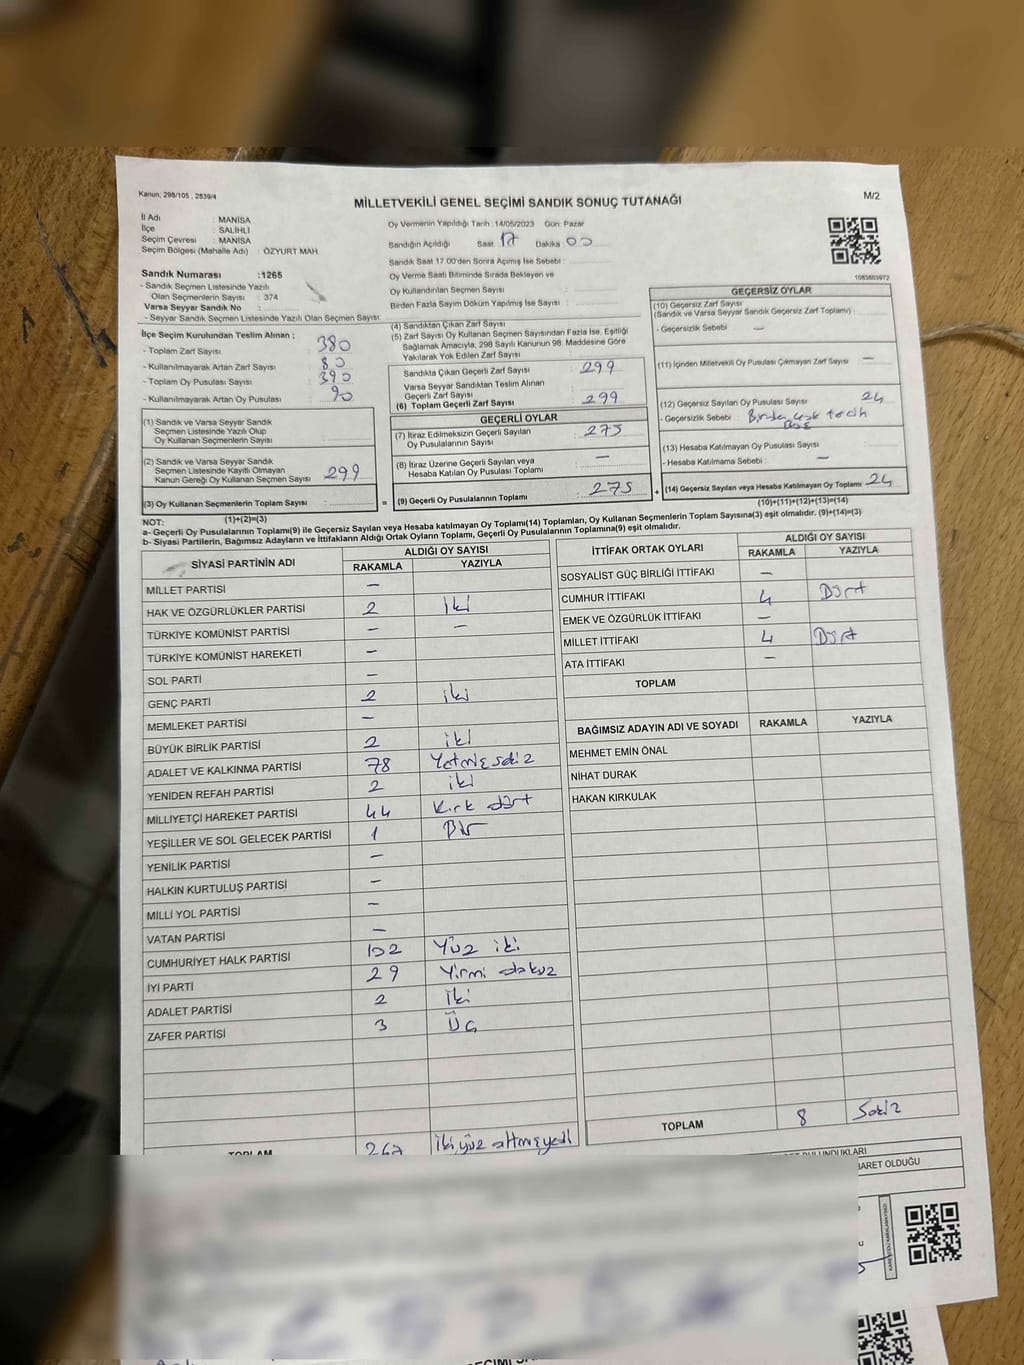 Kanun; 298/105 , 2839/4
MİLLETVEKİLİ GENEL SEÇİMİ SANDIK SONUÇ TUTANAĞI
M/2
İl Adı : MANİSA
İlçe : SALİHLİ
Seçim Çevresi : MANİSA
Seçim Bölgesi (Mahalle Adı) : ÖZYURT MAH.
Sandık Numarası :1265
- Sandık Seçmen Listesinde Yazılı
Olan Seçmenlerin Sayısı : 374
Varsa Seyyar Sandık No :
- Seyyar Sandık Seçmen Listesinde Yazılı Olan Seçmen Sayısı:
Oy Vermenin Yapıldığı Tarih :14/05/2023 Gün: Pazar
Sandığın Açıldığı Saat 17 Dakika 00
Sandık Saat 17.00'den Sonra Açılmış İse Sebebi :
Oy Verme Saati Bitiminde Sırada Bekleyen ve
Oy Kullandırılan Seçmen Sayısı :
Birden Fazla Sayım Döküm Yapılmış İse Sayısı :
1083803972
İlçe Seçim Kurulundan Teslim Alınan ;
- Toplam Zarf Sayısı : 380
- Kullanılmayarak Artan Zarf Sayısı : 80
- Toplam Oy Pusulası Sayısı : 390
- Kullanılmayarak Artan Oy Pusulası : 90
(1) Sandık ve Varsa Seyyar Sandık
Seçmen Listesinde Yazılı Olup
Oy Kullanan Seçmenlerin Sayısı :
(2) Sandık ve Varsa Seyyar Sandık
Seçmen Listesinde Kayıtlı Olmayan
Kanun Gereği Oy Kullanan Seçmen Sayısı : 299
(3) Oy Kullanan Seçmenlerin Toplam Sayısı :
(1)+(2)=(3)
(4) Sandıktan Çıkan Zarf Sayısı
(5) Zarf Sayısı Oy Kullanan Seçmen Sayısından Fazla İse, Eşitliği
Sağlamak Amacıyla, 298 Sayılı Kanunun 98. Maddesine Göre
Yakılarak Yok Edilen Zarf Sayısı :
Sandıkta Çıkan Geçerli Zarf Sayısı : 299
Varsa Seyyar Sandıktan Teslim Alınan
Geçerli Zarf Sayısı
(6) Toplam Geçerli Zarf Sayısı : 299
GEÇERLİ OYLAR
(7) İtiraz Edilmeksizin Geçerli Sayılan
Oy Pusulalarının Sayısı : 275
(8) İtiraz Üzerine Geçerli Sayılan veya
Hesaba Katılan Oy Pusulası Toplamı : —
= (9) Geçerli Oy Pusulalarının Toplamı : 275
GEÇERSİZ OYLAR
(10) Geçersiz Zarf Sayısı
(Sandık ve Varsa Seyyar Sandık Geçersiz Zarf Toplamı) :
- Geçersizlik Sebebi : —
(11) İçinden Milletvekili Oy Pusulası Çıkmayan Zarf Sayısı : —
(12) Geçersiz Sayılan Oy Pusulası Sayısı : 24
- Geçersizlik Sebebi : Birden çok tercih
Boş
(13) Hesaba Katılmayan Oy Pusulası Sayısı
- Hesaba Katılmama Sebebi : —
+ (14) Geçersiz Sayılan veya Hesaba Katılmayan Oy Toplamı 24
(10)+(11)+(12)+(13)=(14)
NOT:
a- Geçerli Oy Pusulalarının Toplamı(9) ile Geçersiz Sayılan veya Hesaba katılmayan Oy Toplamı(14) Toplamları, Oy Kullanan Seçmenlerin Toplam Sayısına(3) eşit olmalıdır. (9)+(14)=(3)
b- Siyasi Partilerin, Bağımsız Adayların ve İttifakların Aldığı Ortak Oyların Toplamı, Geçerli Oy Pusulalarının Toplamına(9) eşit olmalıdır.
SİYASİ PARTİNİN ADI ALDIĞI OY SAYISI
RAKAMLA YAZIYLA
MİLLET PARTİSİ —
HAK VE ÖZGÜRLÜKLER PARTİSİ 2 İki
TÜRKİYE KOMÜNİST PARTİSİ — —
TÜRKİYE KOMÜNİST HAREKETİ —
SOL PARTİ —
GENÇ PARTİ 2 iki
MEMLEKET PARTİSİ —
BÜYÜK BİRLİK PARTİSİ 2 iki
ADALET VE KALKINMA PARTİSİ 78 Yetmiş sekiz
YENİDEN REFAH PARTİSİ 2 iki
MİLLİYETÇİ HAREKET PARTİSİ 44 Kırk dört
YEŞİLLER VE SOL GELECEK PARTİSİ 1 Bir
YENİLİK PARTİSİ —
HALKIN KURTULUŞ PARTİSİ —
MİLLİ YOL PARTİSİ —
VATAN PARTİSİ —
CUMHURİYET HALK PARTİSİ 102 Yüz iki
İYİ PARTİ 29 Yirmi dokuz
ADALET PARTİSİ 2 İki
ZAFER PARTİSİ 3 Üç
TOPLAM 267 İki yüz altmış yedi
İTTİFAK ORTAK OYLARI ALDIĞI OY SAYISI
RAKAMLA YAZIYLA
SOSYALİST GÜÇ BİRLİĞİ İTTİFAKI —
CUMHUR İTTİFAKI 4 Dört
EMEK VE ÖZGÜRLÜK İTTİFAKI —
MİLLET İTTİFAKI 4 Dört
ATA İTTİFAKI —
TOPLAM
BAĞIMSIZ ADAYIN ADI VE SOYADI RAKAMLA YAZIYLA
MEHMET EMİN ÖNAL
NİHAT DURAK
HAKAN KIRKULAK
TOPLAM 8 Sekiz
BULUNDUKLARI
BARET OLDUĞU